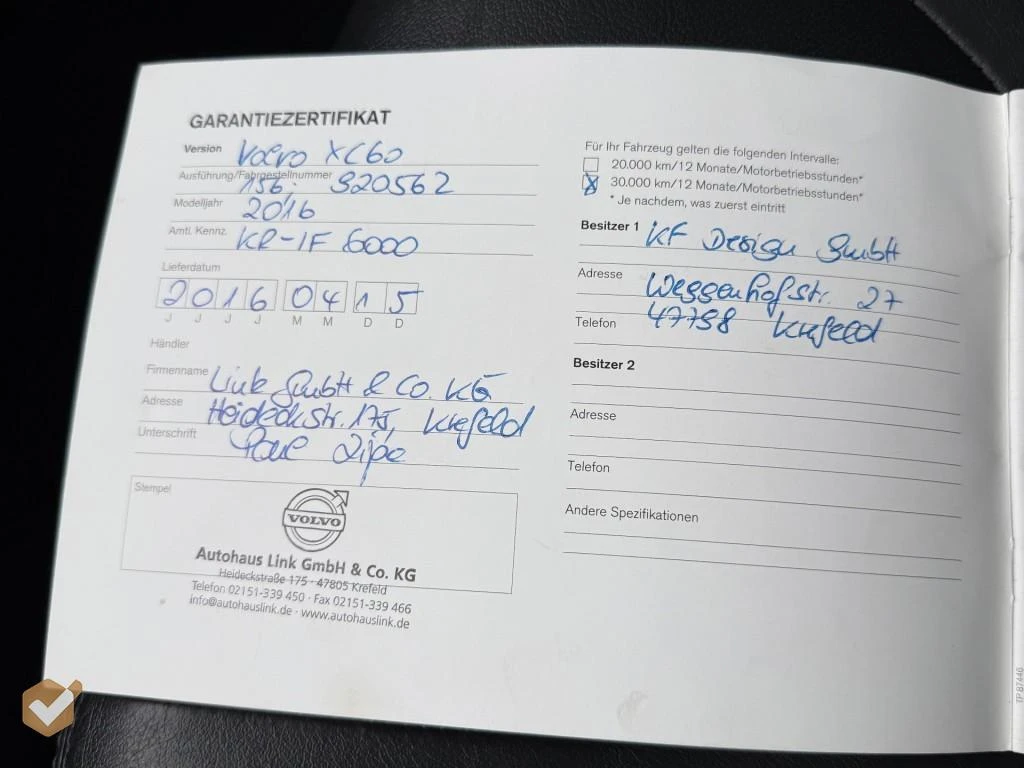 GARANTIEZERTIFIKAT
Version Volvo XC60
Ausführung/Fahrgestellnummer 156; 920562
Modelljahr 2016
Amtl. Kennz. KR-IF 6000
Lieferdatum
2 0 1 6 0 4 1 5
J J J J M M D D
Händler
Firmenname Link GmbH & Co. KG
Adresse Heideckstr. 175, Krefeld
Unterschrift
Stempel
VOLVO
Autohaus Link GmbH & Co. KG
Heideckstraße 175 · 47805 Krefeld
Telefon 02151-339 450 · Fax 02151-339 466
info@autohauslink.de · www.autohauslink.de
Für Ihr Fahrzeug gelten die folgenden Intervalle:
20.000 km/12 Monate/Motorbetriebsstunden*
x 30.000 km/12 Monate/Motorbetriebsstunden*
* Je nachdem, was zuerst eintritt
Besitzer 1 KF Design GmbH
Adresse Weggenhofstr. 27
Telefon 47798 Krefeld
Besitzer 2
Adresse
Telefon
Andere Spezifikationen
TP 87446